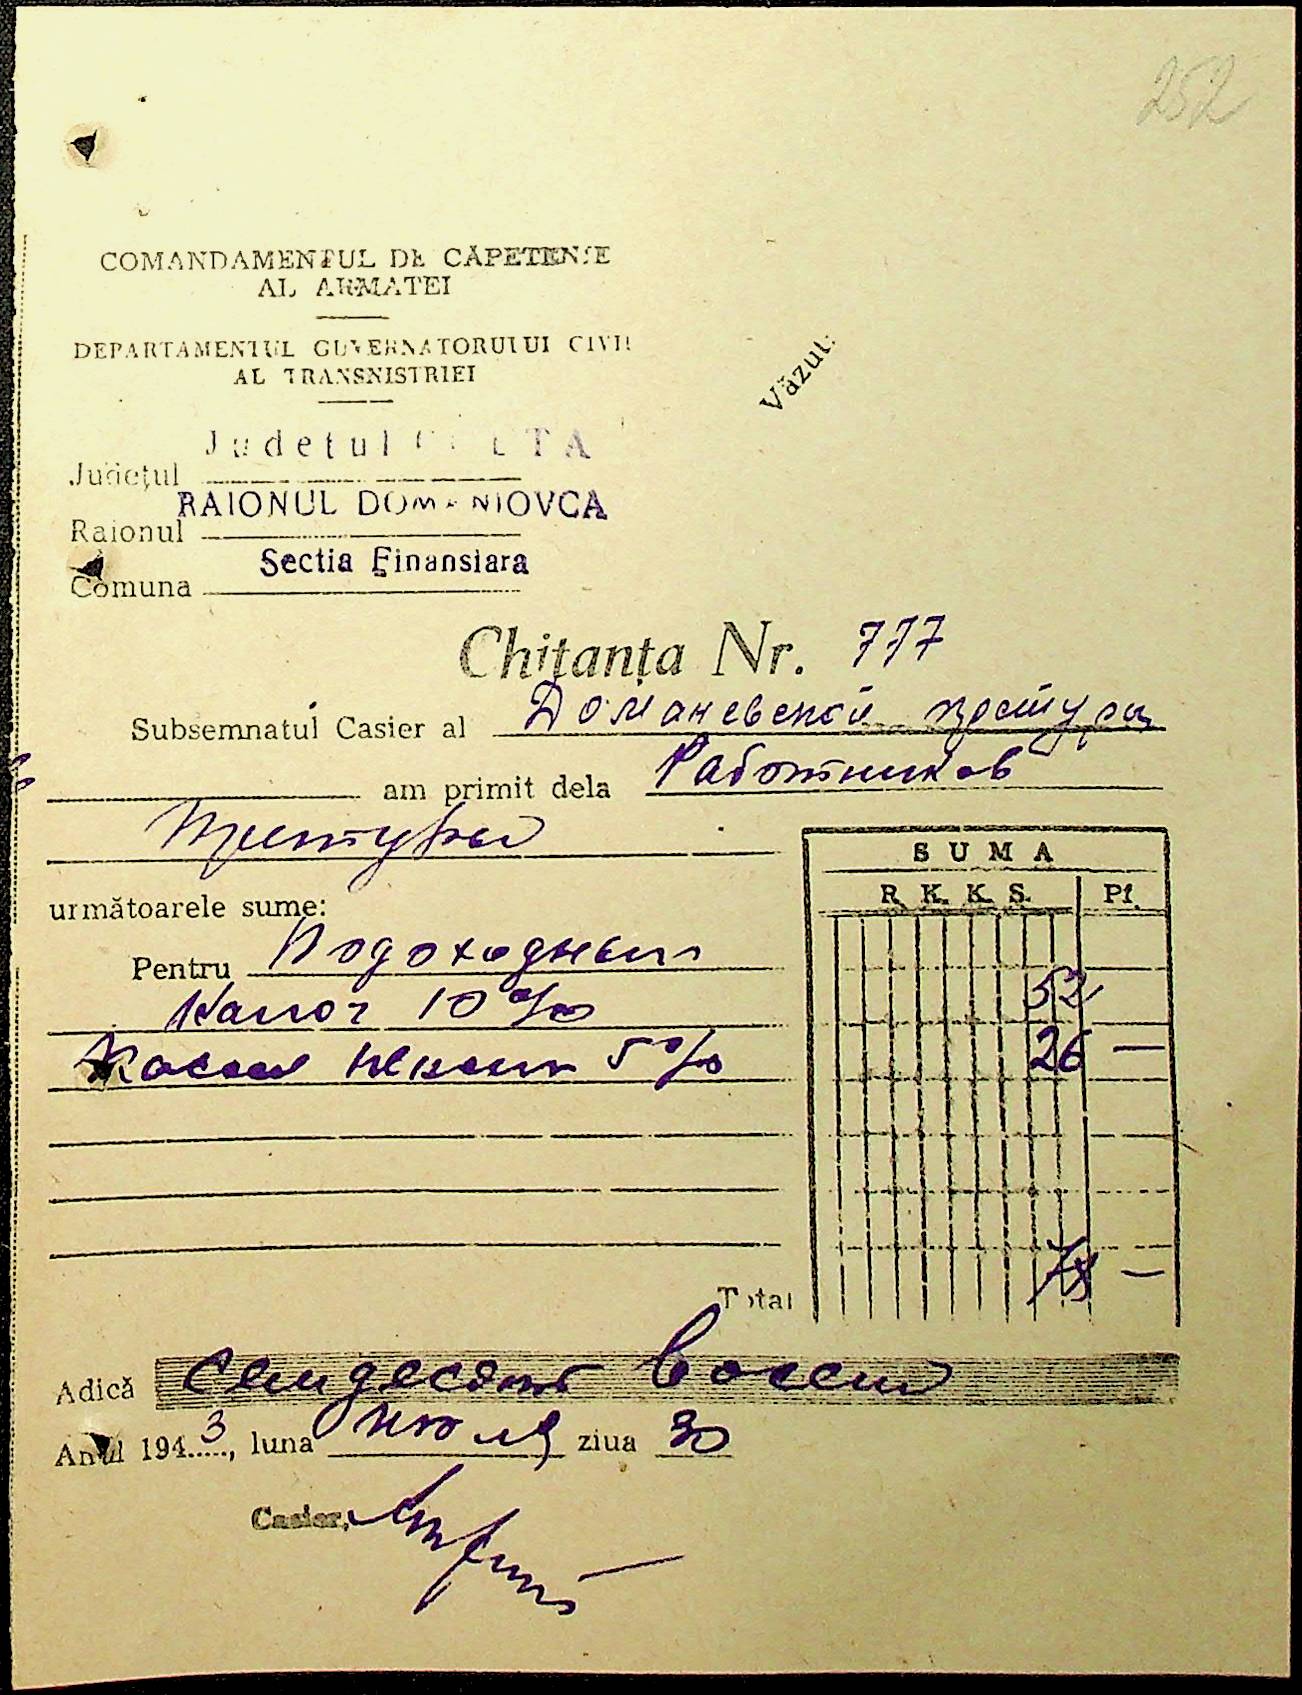 252
COMANDAMENTUL DE CĂPETENIE
AL ARMATEI
DEPARTAMENTUL GUVERNATORULUI CIVIL
AL TRANSNISTRIEI
Văzut:
Judetul GOLTA
Județul
RAIONUL DOMANIOVCA
Raionul
Sectia Finansiara
Comuna
Chitanța Nr. 777
Subsemnatul Casier al Доманевской претуры
am primit dela Работников
Претуры
SUMA
R. K. K. S. Pf.
următoarele sume:
Pentru Подоходный
Налог 10% 52
Касса пенсии 5% 26 —
Total 78 —
Adică Семдесят восем
Anul 1943, luna июля ziua 30
Casier,